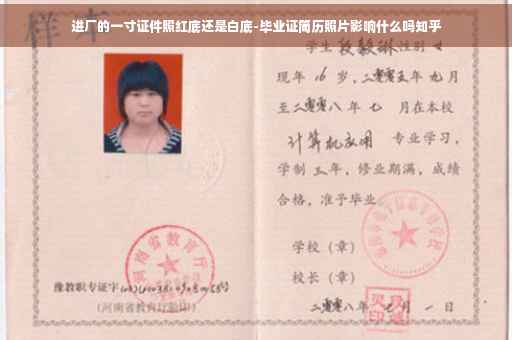 进厂的一寸证件照红底还是白底-毕业证简历照片影响什么吗知乎
样本
学生段毅琳性别女
现年16岁，二零零五年九月
至二零零八年七月在本校
计算机应用 专业学习，
学制三年，修业期满，成绩
合格，准予毕业。
学校（章）
校长（章）
河南省教育厅
豫教职专证字
（河南省教育厅验印）
二零零八年 月一日